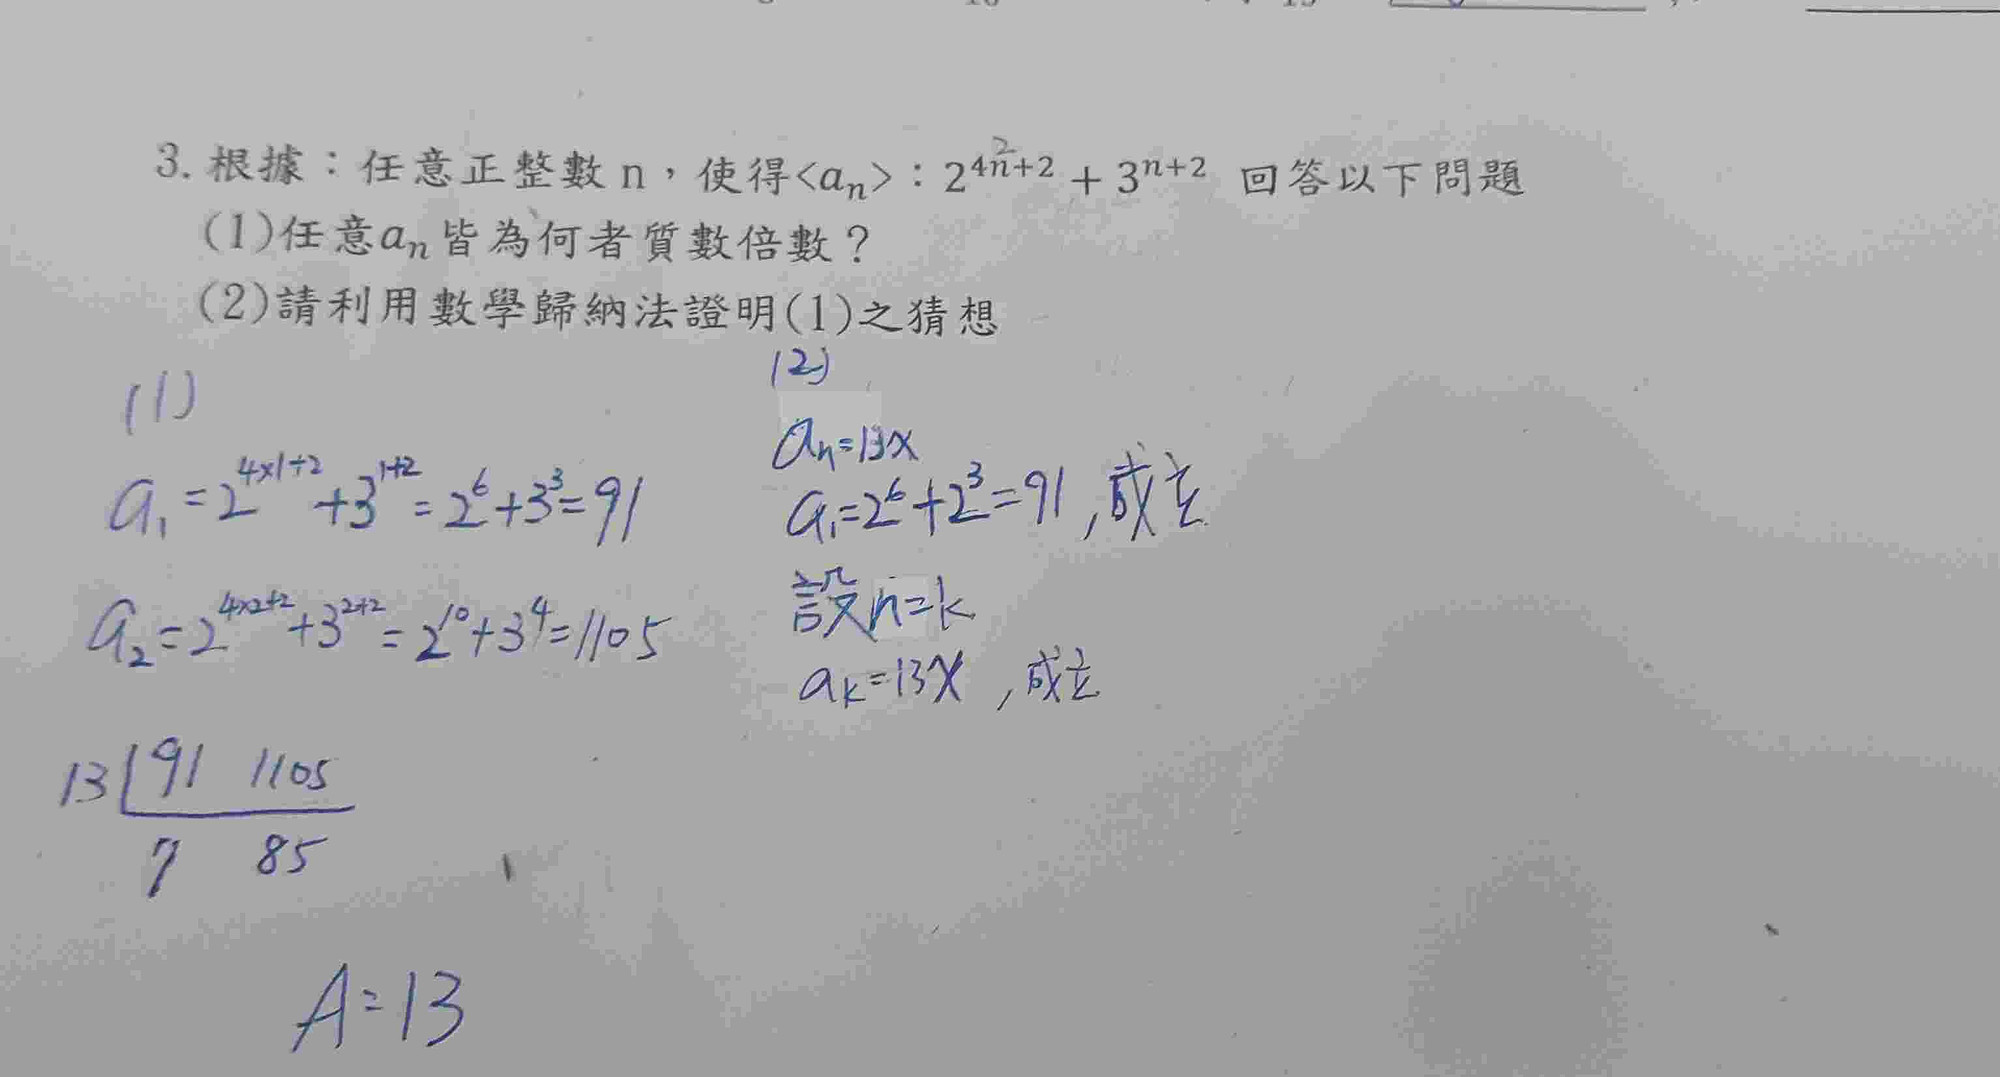 3. 根據：任意正整數 n，使得<aₙ>：2⁴ⁿ⁺² + 3ⁿ⁺² 回答以下問題
2
(1)任意aₙ皆為何者質數倍數？
(2)請利用數學歸納法證明(1)之猜想
(1)
a₁=2^{4×1+2}+3^{1+2}=2⁶+3³=91
a₂=2^{4×2+2}+3^{2+2}=2¹⁰+3⁴=1105
13 91 1105
7 85
A=13
(2)
aₙ=13x
a₁=2⁶+2³=91,成立
設n=k
aₖ=13x,成立